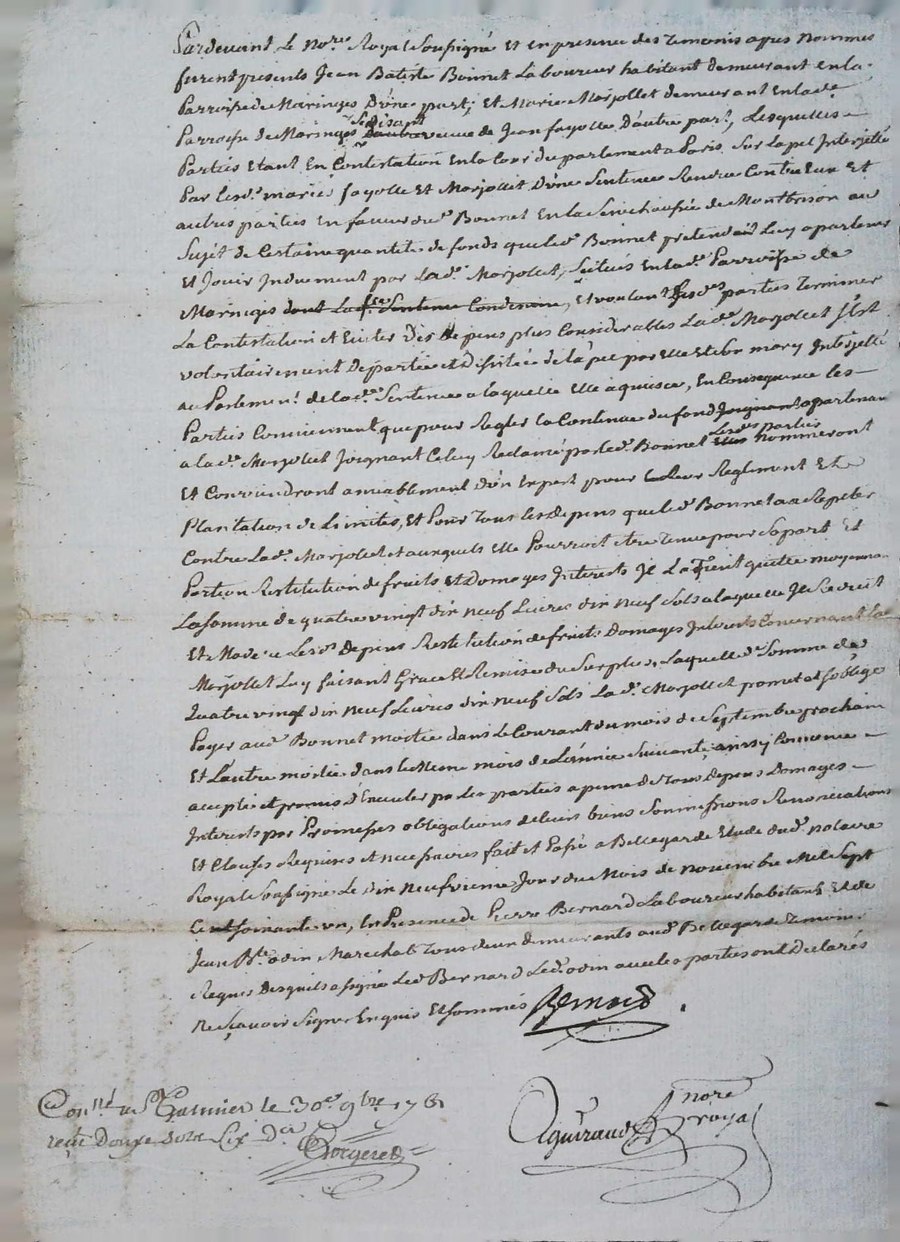 Pardevant Le No.re Royal Soussigné Et en presence des Temoins apres nommés
furent presents Jean Batiste Bonnet Laboureur habitant demeurant en la
Parroisse de Maringes D'une part; Et Marie Morjollet demeurant En lad.e
Parroisse de Maringes Se disant veuve de Jean fayolle D'autre part, Lesquelles
Parties Etant En Contestation En la Cour du parlement a Paris Sur lapel Interjetté
Par lesd.s mariés fayolle Et Morjollet D'une Sentence Rendue Contre Eux Et
autres parties En faveur dud. Bonnet En la Senechaussée de Montbrison au
Sujet de Certaine quantité de fonds que led. Bonnet pretendoit Luy apartenir
Et Jouir Induement par Lad.e Morjollet, Scitués En lad.e Parroisse de
Maringes dont La d.e Sentence Condemne, Et voulant lesd.es parties Terminer
La Contestation Et Eviter des depens plus Considerables Lad.e Morjollet S'est
volontairement Departie et Desistée de l'apel par elle et son mary Interjetté
au Parlement de lad.e Sentence a laquelle Elle acquiesce, En Consequence les
Parties Conviennent que pour Regler la Contenue du fond Joignant apartenant
a lad.e Morjollet Joignant Celuy Reclamé par led. Bonnet Lesd.es parties nommeront
Et Conviendront amiablement D'un Expert pour Leur Reglement Et
Plantation de Limites, Et Pour Tous les depens que led. Bonnet a a Repeter
Contre Lad.e Morjollet et auxquels elle Pourroit être Tenue pour Sa part Et
Portion Restitution de fruits Et Domages Interets Il La Tient quitte moyennant
La Somme de quatre vingt dix Neuf Livres dix Neuf Sols a laquelle Il Se Reduit
Et Modere Lesd.s depens Restitution de fruits Domages Interets Concernant la
Morjollet Luy faisant Grace Et Remise du Surplus, Laquelle d.e Somme de
Quatre vingt dix Neuf Livres dix Neuf Sols La d.e Morjollet promet et s'oblige
Payer aud. Bonnet moitié dans le Courant du mois de Septembre prochain
Et L'autre moitié dans le Meme mois de L'année Suivante, ainsy Convenu
accepté et promis D'Executer par les parties a peine de Tous Depens Domages
Interets par Promesses obligations de leurs biens Soumissions Renonciations
Et Clauses Requises et necessaires fait et Passé a Bellegarde Etude dud. notaire
Royal Soussigné Le dix Neufvieme Jour du Mois de Novembre Mil Sept
Cent Soixante un, En Presence de Pierre Bernard Laboureur habitant Et de
Jean B.te odin Marechal Tous deux demeurants aud. Bellegarde Temoins
Requis Desquels a signé Led. Bernard Led. odin avec les parties ont Declarés
Ne Sçavoir Signer Enquis Et Sommés Bernard
Con.llé a S.t Galmier le 30.e 9bre 1761
reçu Douze Sols Six d.rs
Aguiraud nore royal